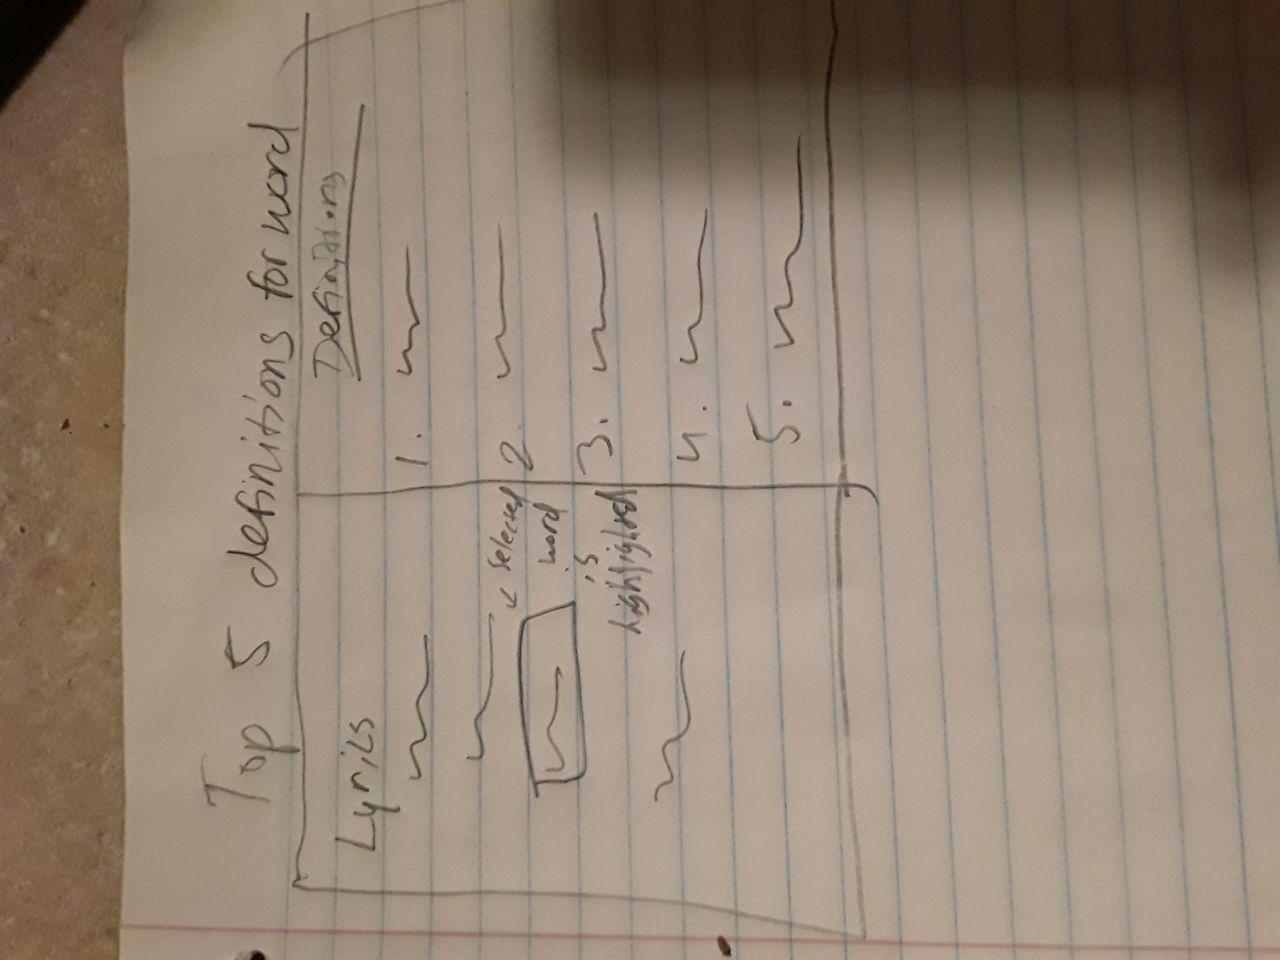 Top 5 definitions for word
Lyrics
< selected
word
is
highlighted
Definitions
1.
2.
3.
4.
5.